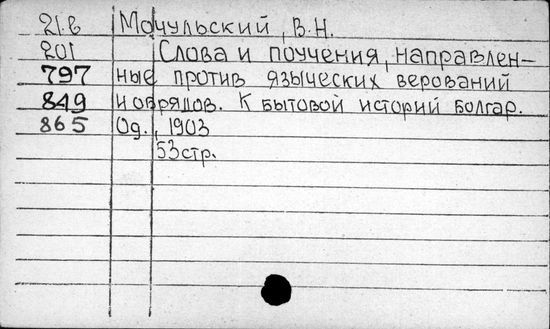 21.в Мочульский, В.Н.
201 Слова и поучения, направлен-
797 ные против языческих верований
849 и обрядов. К бытовой историй болгар.
865 Од., 1903
53стр.